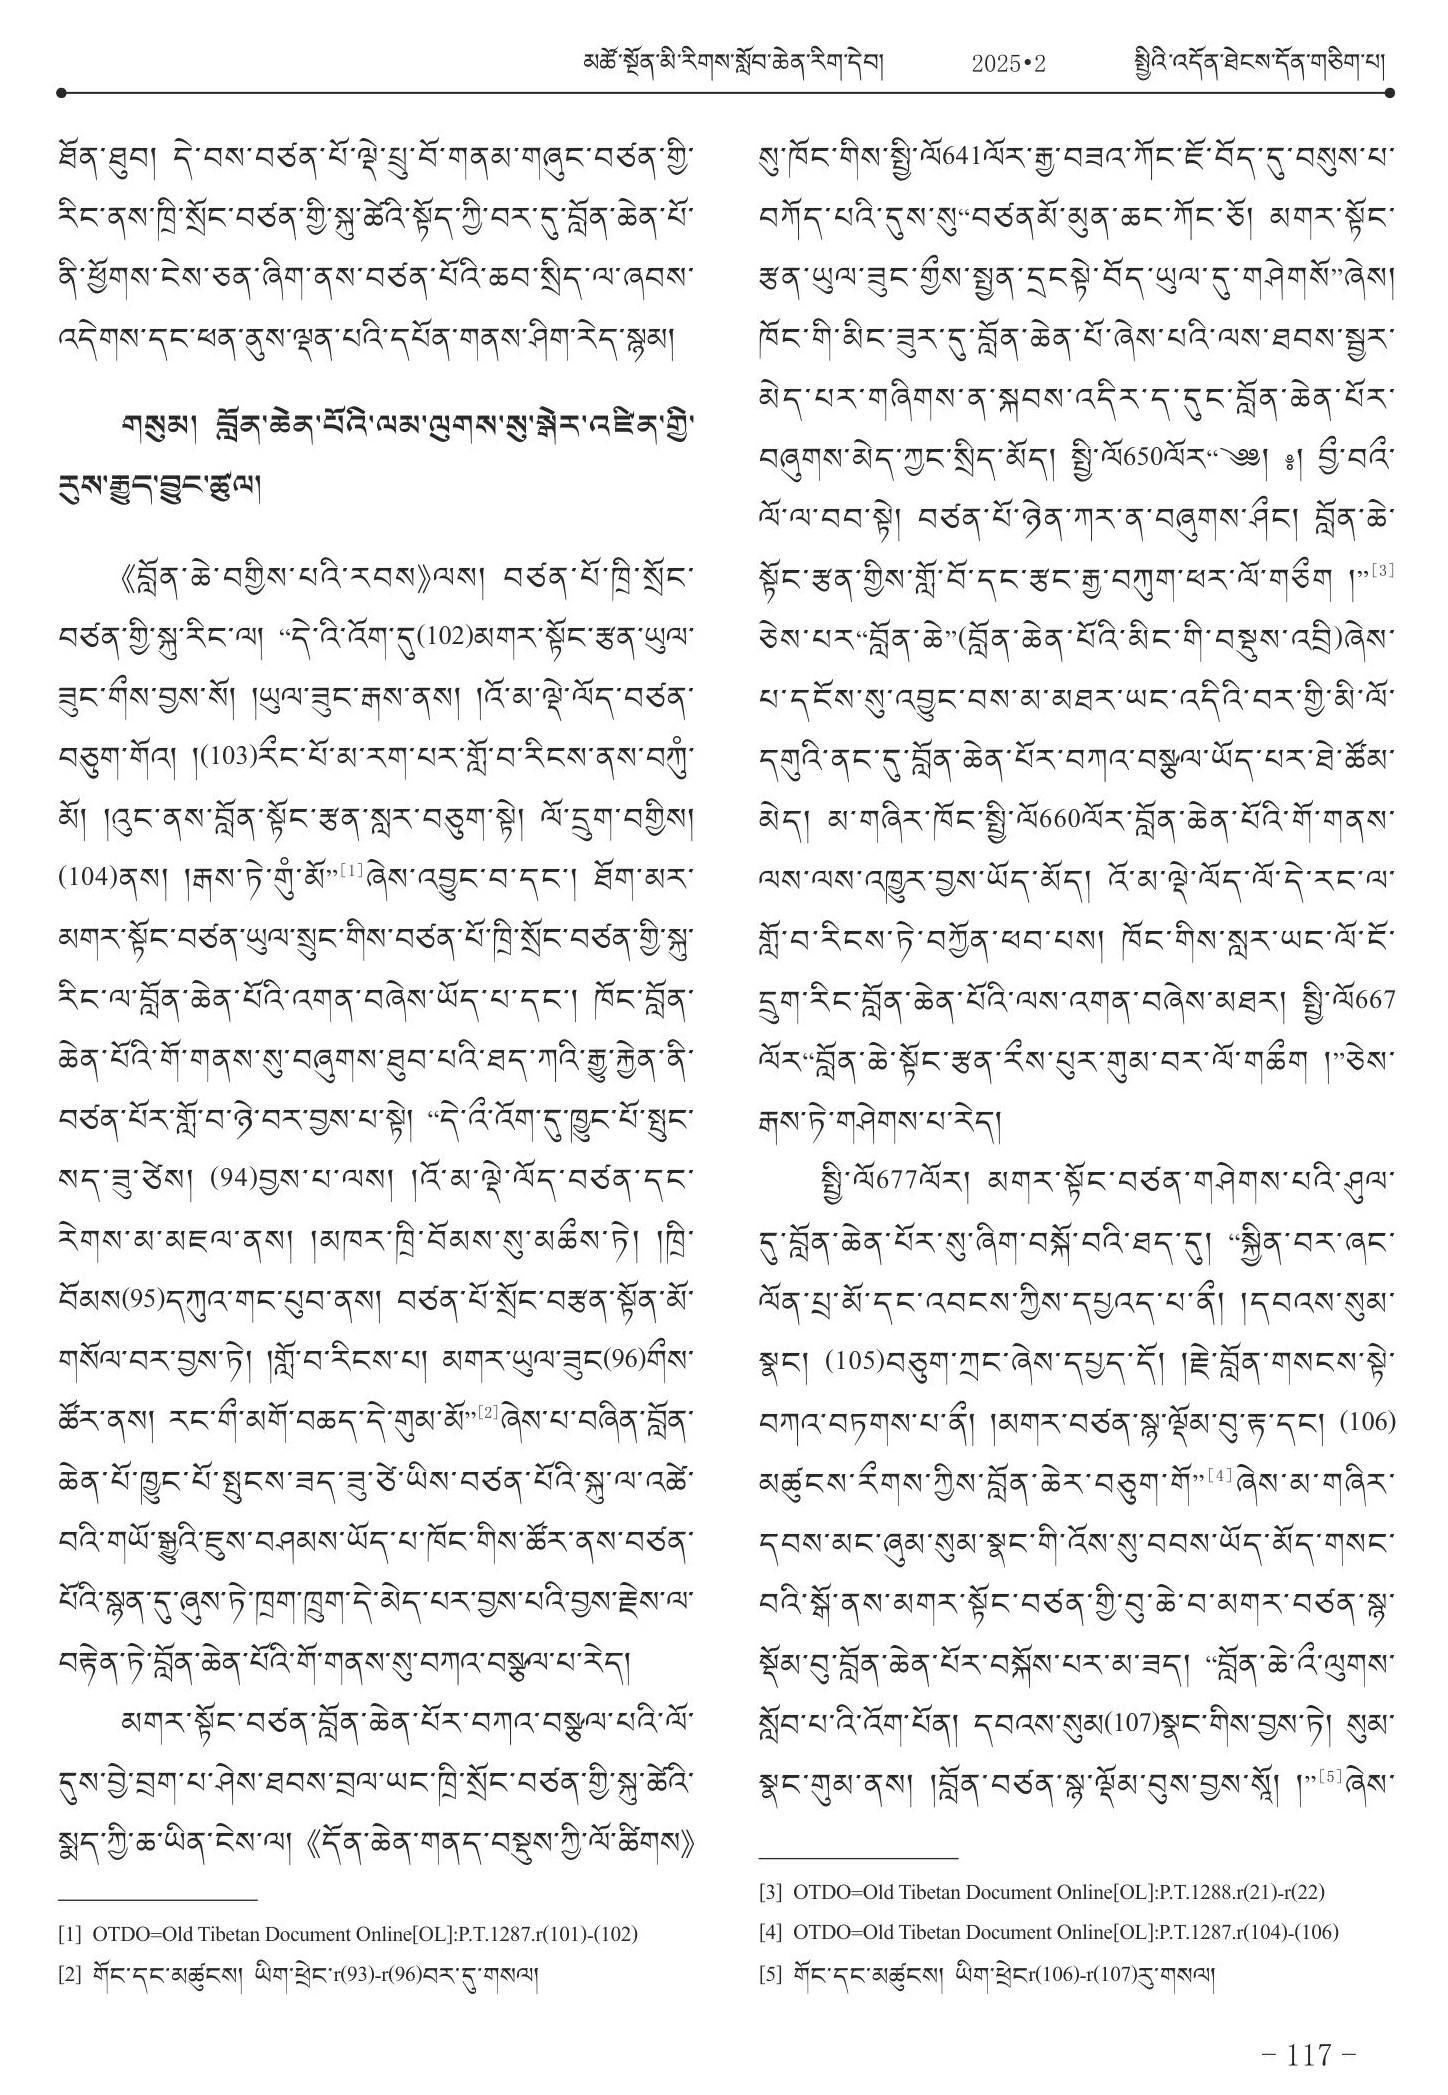 མཚོ་སྔོན་མི་རིགས་སློབ་ཆེན་རིག་དེབ། 2025•2 སྤྱིའི་འདོན་ཐེངས་དོན་གཅིག་པ།
ཐོན་ཐུབ། དེ་བས་བཙན་པོ་ལྡེ་པྲུ་བོ་གནམ་གཞུང་བཙན་གྱི་
རིང་ནས་ཁྲི་སྲོང་བཙན་གྱི་སྐུ་ཚེའི་སྟོད་ཀྱི་བར་དུ་བློན་ཆེན་པོ་
ནི་ཕྱོགས་ངེས་ཅན་ཞིག་ནས་བཙན་པོའི་ཆབ་སྲིད་ལ་ཞབས་
འདེགས་དང་ཕན་ནུས་ལྡན་པའི་དཔོན་གནས་ཤིག་རེད་སྙམ།
གསུམ། བློན་ཆེན་པོའི་ལམ་ལུགས་སུ་སྒེར་འཛིན་གྱི་
རུས་རྒྱུད་བྱུང་ཚུལ།
《བློན་ཆེ་བགྱིས་པའི་རབས》ལས། བཙན་པོ་ཁྲི་སྲོང་
བཙན་གྱི་སྐུ་རིང་ལ། “དེ་འི་འོག་དུ(102)མགར་སྟོང་རྩན་ཡུལ་
ཟུང་གཱིས་བྱས་སོ། །ཡུལ་ཟུང་རྒས་ནས། །འོ་མ་ལྡེ་ལོད་བཙན་
བཅུག་གོའ། །(103)རཱིང་པོ་མ་རག་པར་གློ་བ་རིངས་ནས་བཀུཾ་
མོ། །འུང་ནས་བློན་སྟོང་རྩན་སླར་བཅུག་སྟེ། ལོ་དྲུག་བགྱིས།
(104)ནས། །རྒས་ཏེ་གུཾ་མོ”[1]ཞེས་འབྱུང་བ་དང་། ཐོག་མར་
མགར་སྟོང་བཙན་ཡུལ་སྲུང་གིས་བཙན་པོ་ཁྲི་སྲོང་བཙན་གྱི་སྐུ་
རིང་ལ་བློན་ཆེན་པོའི་འགན་བཞེས་ཡོད་པ་དང་། ཁོང་བློན་
ཆེན་པོའི་གོ་གནས་སུ་བཞུགས་ཐུབ་པའི་ཐད་ཀའི་རྒྱུ་རྐྱེན་ནི་
བཙན་པོར་གློ་བ་ཉེ་བར་བྱས་པ་སྟེ། “དེ་འཱི་འོག་དུ་ཁྱུང་པོ་སྤུང་
སད་ཟུ་ཙེས། (94)བྱས་པ་ལས། །འོ་མ་ལྡེ་ལོད་བཙན་དང་
རེགས་མ་མཇལ་ནས། །མཁར་ཁྲི་བོམས་སུ་མཆཱིས་ཏེ། །ཁྲི་
བོམས(95)དཀུའ་གང་ཕུབ་ནས། བཙན་པོ་སྲོང་བརྩན་སྟོན་མོ་
གསོལ་བར་བྱས་ཏེ། །གློ་བ་རིངས་པ། མགར་ཡུལ་ཟུང(96)གཱིས་
ཚོར་ནས། རང་གཱི་མགོ་བཆད་དེ་གུམ་མོ”[2]ཞེས་པ་བཞིན་བློན་
ཆེན་པོ་ཁྱུང་པོ་སྤུངས་ཟད་ཟུ་ཙེ་ཡིས་བཙན་པོའི་སྐུ་ལ་འཚེ་
བའི་གཡོ་སྒྱུའི་ཇུས་བཤམས་ཡོད་པ་ཁོང་གིས་ཚོར་ནས་བཙན་
པོའི་སྙན་དུ་ཞུས་ཏེ་ཁྲག་ཁྲུག་དེ་མེད་པར་བྱས་པའི་བྱས་རྗེས་ལ་
བརྟེན་ཏེ་བློན་ཆེན་པོའི་གོ་གནས་སུ་བཀའ་བསྩལ་པ་རེད།
མགར་སྟོང་བཙན་བློན་ཆེན་པོར་བཀའ་བསྩལ་པའི་ལོ་
དུས་བྱེ་བྲག་པ་ཤེས་ཐབས་བྲལ་ཡང་ཁྲི་སྲོང་བཙན་གྱི་སྐུ་ཚེའི་
སྨད་ཀྱི་ཆ་ཡིན་ངེས་ལ། 《དོན་ཆེན་གནད་བསྡུས་ཀྱི་ལོ་ཚིགས》
[1] OTDO=Old Tibetan Document Online[OL]:P.T.1287.r(101)-(102)
[2] གོང་དང་མཚུངས། ཡིག་ཕྲེང་r(93)-r(96)བར་དུ་གསལ།
སུ་ཁོང་གིས་སྤྱི་ལོ641ལོར་རྒྱ་བཟའ་ཀོང་ཇོ་བོད་དུ་བསུས་པ་
བཀོད་པའི་དུས་སུ“བཙནམོ་མུན་ཆང་ཀོང་ཅོ། མགར་སྟོང་
རྩན་ཡུལ་ཟུང་གྱཱིས་སྤྱན་དྲངསྟེ་བོད་ཡུལ་དུ་གཤེགསོ”ཞེས།
ཁོང་གི་མིང་ཟུར་དུ་བློན་ཆེན་པོ་ཞེས་པའི་ལས་ཐབས་སྦྱར་
མེད་པར་གཞིགས་ན་སྐབས་འདིར་ད་དུང་བློན་ཆེན་པོར་
བཞུགས་མེད་ཀྱང་སྲིད་མོད། སྤྱི་ལོ650ལོར“༄༅། ༔། བྱཱི་བའཱི་
ལོ་ལ་བབ་སྟེ། བཙན་པོ་ཉེན་ཀར་ན་བཞུགས་ཤཱིང། བློན་ཆེ་
སྟོང་རྩན་གྱིས་གློ་བོ་དང་རྩང་རྒྱ་བཀུག་ཕར་ལོ་གཅཱིག །”[3]
ཅེས་པར“བློན་ཆེ”(བློན་ཆེན་པོའི་མིང་གི་བསྡུས་འབྲི)ཞེས་
པ་དངོས་སུ་འབྱུང་བས་མ་མཐར་ཡང་འདིའི་བར་གྱི་མི་ལོ་
དགུའི་ནང་དུ་བློན་ཆེན་པོར་བཀའ་བསྩལ་ཡོད་པར་ཐེ་ཚོམ་
མེད། མ་གཞིར་ཁོང་སྤྱི་ལོ660ལོར་བློན་ཆེན་པོའི་གོ་གནས་
ལས་ལས་འཁྱུར་བྱས་ཡོད་མོད། འོ་མ་ལྡེ་ལོད་ལོ་དེ་རང་ལ་
གློ་བ་རིངས་ཏེ་བཀྱོན་ཕབ་པས། ཁོང་གིས་སླར་ཡང་ལོ་ངོ་
དྲུག་རིང་བློན་ཆེན་པོའི་ལས་འགན་བཞེས་མཐར། སྤྱི་ལོ667
ལོར“བློན་ཆེ་སྟོང་རྩན་རཱིས་པུར་གུམ་བར་ལོ་གཆཱིག །”ཅེས་
རྒས་ཏེ་གཤེགས་པ་རེད།
སྤྱི་ལོ677ལོར། མགར་སྟོང་བཙན་གཤེགས་པའི་ཤུལ་
དུ་བློན་ཆེན་པོར་སུ་ཞིག་བསྐོ་བའི་ཐད་དུ། “སྐྱིན་བར་ཞང་
ལོན་ཕྲ་མོ་དང་འབངས་ཀྱིས་དཔྱའད་པ་ནཱི། །དབའས་སུམ་
སྣང། (105)བཅུག་ཀྲང་ཞེས་དཔྱད་དོ། །རྗེ་བློན་གསངས་སྟེ་
བཀའ་བཏགས་པ་ནཱི། །མགར་བཙན་སྙ་ལྡོམ་བུ་རྟ་དང། (106)
མཚུངས་རཱིགས་ཀྱིས་བློན་ཆེར་བཅུག་གོ”[4]ཞེས་མ་གཞིར་
དབས་མང་ཞུམ་སུམ་སྣང་གི་འོས་སུ་བབས་ཡོད་མོད་གསང་
བའི་སྒོ་ནས་མགར་སྟོང་བཙན་གྱི་བུ་ཆེ་བ་མགར་བཙན་སྙ་
སྡོམ་བུ་བློན་ཆེན་པོར་བསྐོས་པར་མ་ཟད། “བློན་ཆེ་འཱི་ལུགས་
སློབ་པ་འི་འོག་པོན། དབའས་སུམ(107)སྣང་གིས་བྱས་ཏེ། སུམ་
སྣང་གུམ་ནས། །བློན་བཙན་སྙ་ལྡོམ་བུས་བྱས་སཱོ། །”[5]ཞེས་
[3] OTDO=Old Tibetan Document Online[OL]:P.T.1288.r(21)-r(22)
[4] OTDO=Old Tibetan Document Online[OL]:P.T.1287.r(104)-(106)
[5] གོང་དང་མཚུངས། ཡིག་ཕྲེངr(106)-r(107)རུ་གསལ།
– 117 –